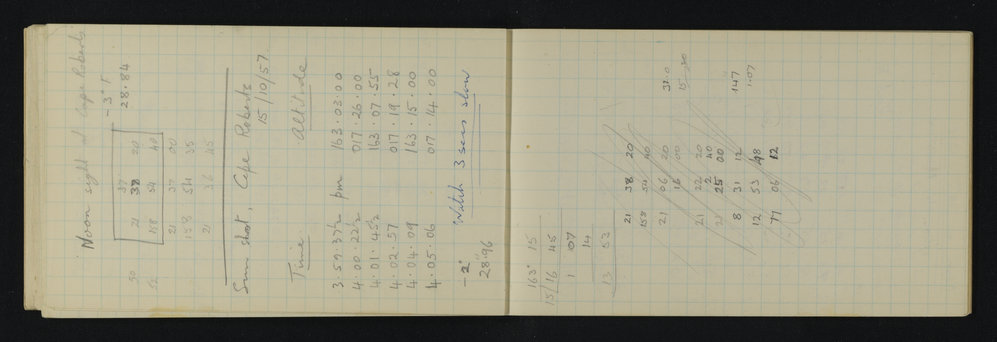 Noon sight at Cape Roberts
-3° F
28.84
37
50 21 38 20
52 158 54 40
21 37 00
158 54 35
21 36 45
Sun shot, Cape Roberts
15/10/57
Time. Altitude
3.59.37½ pm 163.03.00
4.00.22½ 017.26.00
4.01.45½ 163.07.55
4.02.57 017.19.28
4.04.09 163.15.00
4.05.06 017.14.00
Watch 3 secs slow
-2°
28.96
163° 15
15/16 45
1 107
14
13 53
21 38 20
158 54 40
21 06 20
16 00
31.0
15.30
21 22 20
2 40
21 25 00
8 31 12
147
12 53 48
1.07
77 06 12